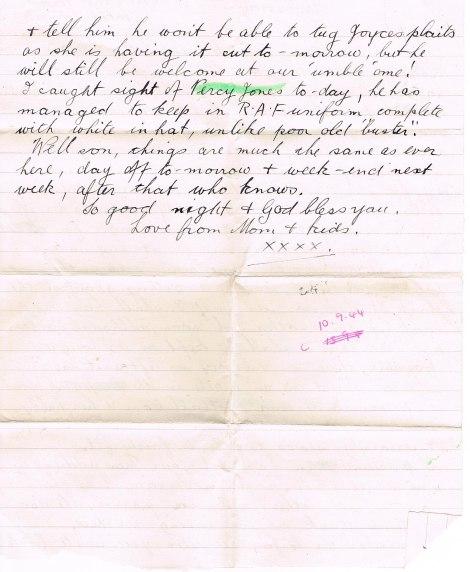 + tell him, he won't be able to tug Joyces plaits
as she is having it cut to-morrow, but he
will still be welcome at our 'umble 'ome!
I caught sight of Percy Jones to-day, he has
managed to keep in R.A.F uniform, complete
with white in hat, unlike poor old "buster".
Well son, things are much the same as ever
here, day off to-morrow + week-end next
week, after that who knows.
So good night & God bless you.
Love from Mom & kids.
xxxx.
10.9.44